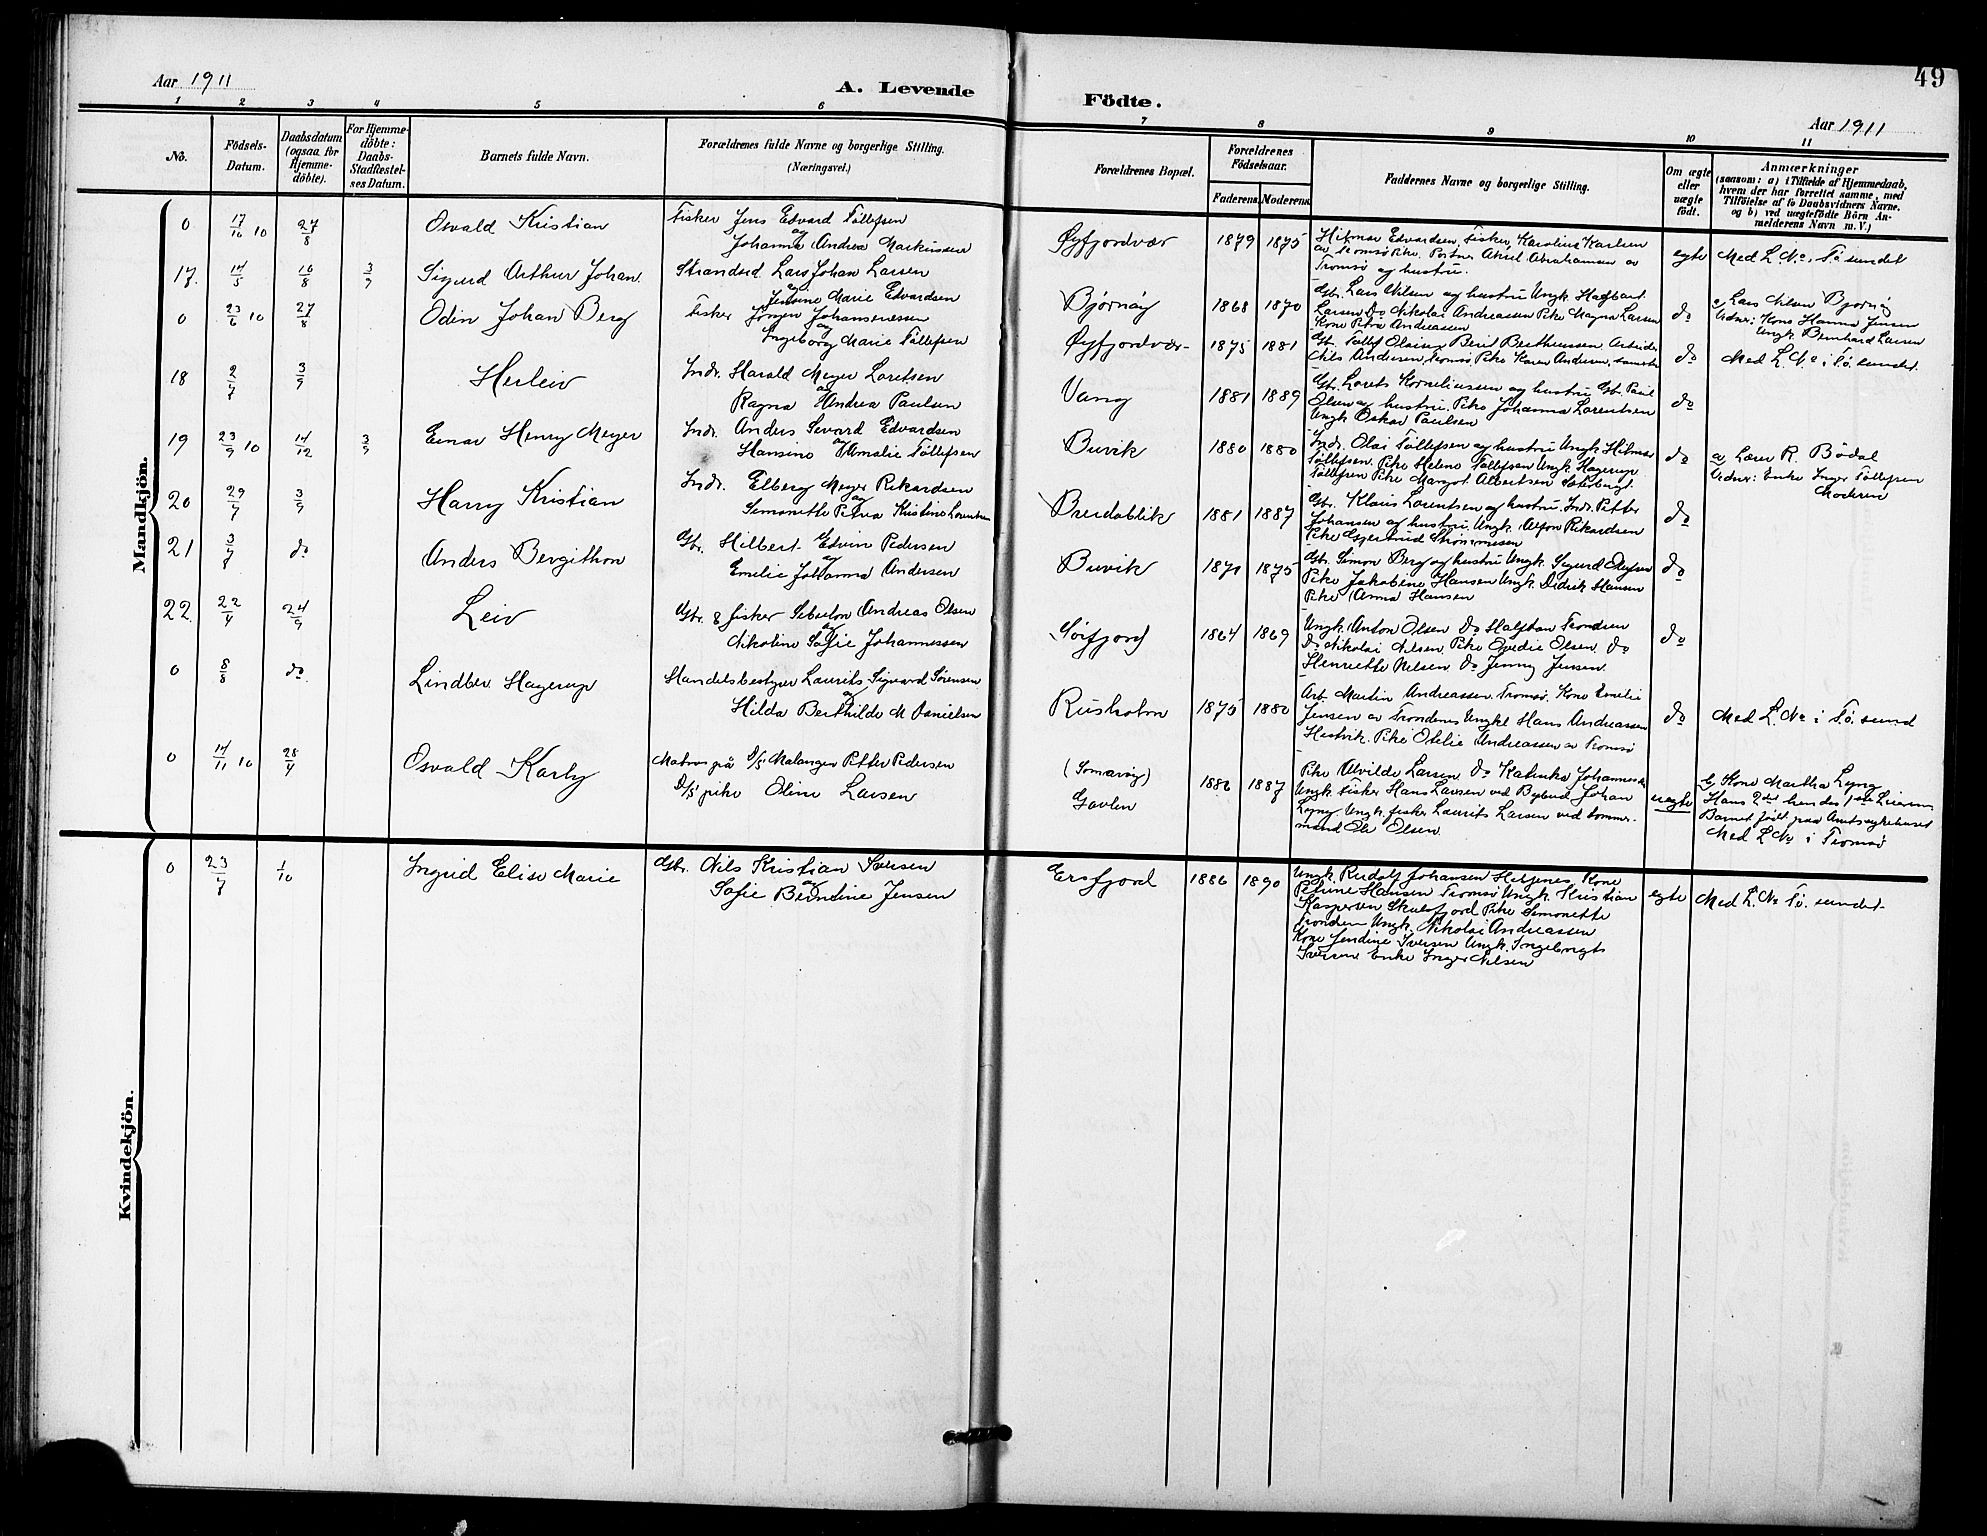 49
Aar 1911
A. Levende Födte.
Aar 1911
1 2 3 4 5 6 7 8 9 10 11
No.
Födsels-Datum.
Daabsdatum (ogsaa for Hjemme-döbte).
For Hjemme-döbte: Daabs-Stadfæstel-ses Datum.
Barnets fulde Navn.
Forældrenes fulde Navne og borgerlige Stilling.
(Næringsvei.)
Forældrenes Bopæl.
Forældrenes Födselsaar.
Faderens. Moderens.
Faddernes Navne og borgerlige Stilling.
Om ægte eller uægte födt.
Anmærkninger
(saasom: a) i Tilfælde af Hjemmedaab,
hvem der har forrettet samme, med
Tilföielse af to Daabsvidners Navne,
og b) ved uægtefödte Börn An-
melderens Navn m. V.)
Mandkjön.
0 17/10 10 27/8 Osvald Kristian
Fisker Jens Edvard Tollefsen
og
Johanna Andrea Markussen
Øyfjordvær 1879 1875
Hilmar Edvardsen, Fisker, Karoline Karlsen
av Tromsø Pike. Portner Aksel Abrahamsen av
Tromsø og hustru.
egte Med L. No. i Tø sundet
17. 14/5 16/8 3/9 Sigurd Arthur Johan
Strandsd Lars Johan Larsen
og
Jensine Marie Edvardsen
Bjørnøy 1868 1870
Gbr. Lars Nilsen og hustru Ungk. Hagbart
Larsen Do Nikolai Andreassen Pike Magna Larsen
Kone Petra Andreassen
do a) Lars Nilsen Bjørnøy
Vidner: Kone Hanna Jensen
Ungk. Bernhard Larsen
0 23/6 10 27/8 Odin Johan Berg
Fisker Jørgen Johannessen
og
Ingeborg Marie Tollefsen
Øyfjordvær 1875 1881
do Med L. No. i Tø. sundet.
18 2/7 3/9 Herleiv
Indr. Harald Meyer Loretsen
og
Ragna Andrea Paulsen
Vang 1881 1889
Gbr. Lorets Korneliussen og hustru Gbr. Paul
Olsen og hustru. Pike Johanna Lorentsen
Ungk. Oskar Paulsen
do
19 23/9 10 14/12 3/9 Einar Henry Meyer
Indr. Anders Sevard Edvardsen
og
Hansine Amalie Tollefsen
Buvik 1880 1880
Indr. Olai Tollefsen og hustru Ungk. Hilmar
Tollefsen. Pike Helene Tollefsen Ungk. Hagerup
Tollefsen Pike Margot Albertsen
do a) Lærer R. Bødal
Vidner: Enke Inger Tollefsen
Moderen
20 29/7 3/9 Harry Kristian
Indr. Elberg Meyer Rikardsen
og
Simonette Petrea Kristine Lorentsen
Breidablik 1881 1887
Gbr. Klaus Lorentsen og hustru. Indr. Petter
Johansen og hustru. Ungk. Alfon Rikardsen
Pike Gjertrud
do
21 3/8 do Anders Bergithon
Gbr. Hilbert Edvin Pedersen
og
Emelie Johanna Andersen
Buvik 1871 1875
Gbr. Simon Berg og hustru Ungk. Sigurd Olufsen
Pike Jakobine Hansen Ungk. Didrik Hansen
Pike Anna Hansen
do
22 22/4 24/9 Leiv
Gbr. & fisker Sebulon Andreas Olsen
og
Nikoline Sofie Johannessen
Sørfjord 1864 1869
Ungk. Anton Olsen Do Halfdan Trondsen
Do Nikolai Nilsen. Pike Ovedie Olsen. Do
Henriette Nilsen Do Jenny Jensen.
do
0 8/8 do. Lindber Hagerup
Handelsbestyrer Laurits Sigvard Sørensen
og
Hilda Berthilde M. Danielsen
Risholm 1875 1880
Arb. Martin Andreassen Tromsø. Kone Emelie
Jensen av Trondenes Ungk. Hans Andreassen
Hestvik. Pike Otelie Andreassen av Tromsø
do Med L. No. i Tø. sund
0 14/11 10 28/4 Osvald Karly
Matros på D/S. Malangen Petter Pedersen
pike Oline Larsen
(Tomasvig)
Gavlen 1886 1887
Pike Alvilde Larsen. Do Katinka Johannessen
Ungk. Fisker Hans Larsen ved Bybud Johan
Lyng. Ungk. fisker Laurits Larsen ved tømmer-
mand Ole Olsen.
uegte b) Kone Martha Lyng
Hans 2det hendes 1ste Leierm
Barnet født paa Amtssykehuset
Med L. No i Tromsø
Kvindekjön.
0 23/7 1/10 Ingrid Elise Marie
Gbr. Nils Kristian Iversen
og
Sofie Berndine Jensen
Ersfjord 1886 1890
Ungk. Rudolf Johansen Kone
Petrine Hansen Tromsø Ungk. Kristian
Kaspersen Skulsfjord Pike Simonette
Trondsen Ungk. Nikolai Andreassen
Kone Jendine Iversen Ungk. Ingebrigt
Iversen Enke Inger Nilsen
egte Med L. No Tø. sundet.